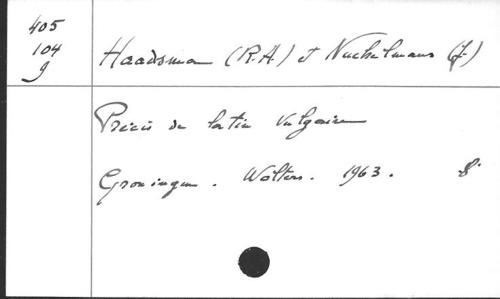 405
104
g
Haadsma (R.A.) et Nuchelmans (J.)
Précis de latin vulgaire
Groningen. Wolters. 1963. 8°